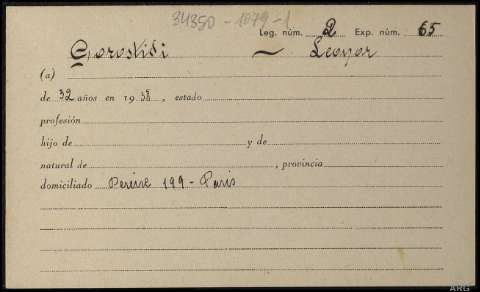 34350-1079-1
Leg. núm. 2 Exp. núm. 65
Gorostidi ~ Leonor
(a)
de 32 años en 1938, estado
profesión
hijo de y de
natural de , provincia
domiciliado Pereire 199 - Paris
ARG